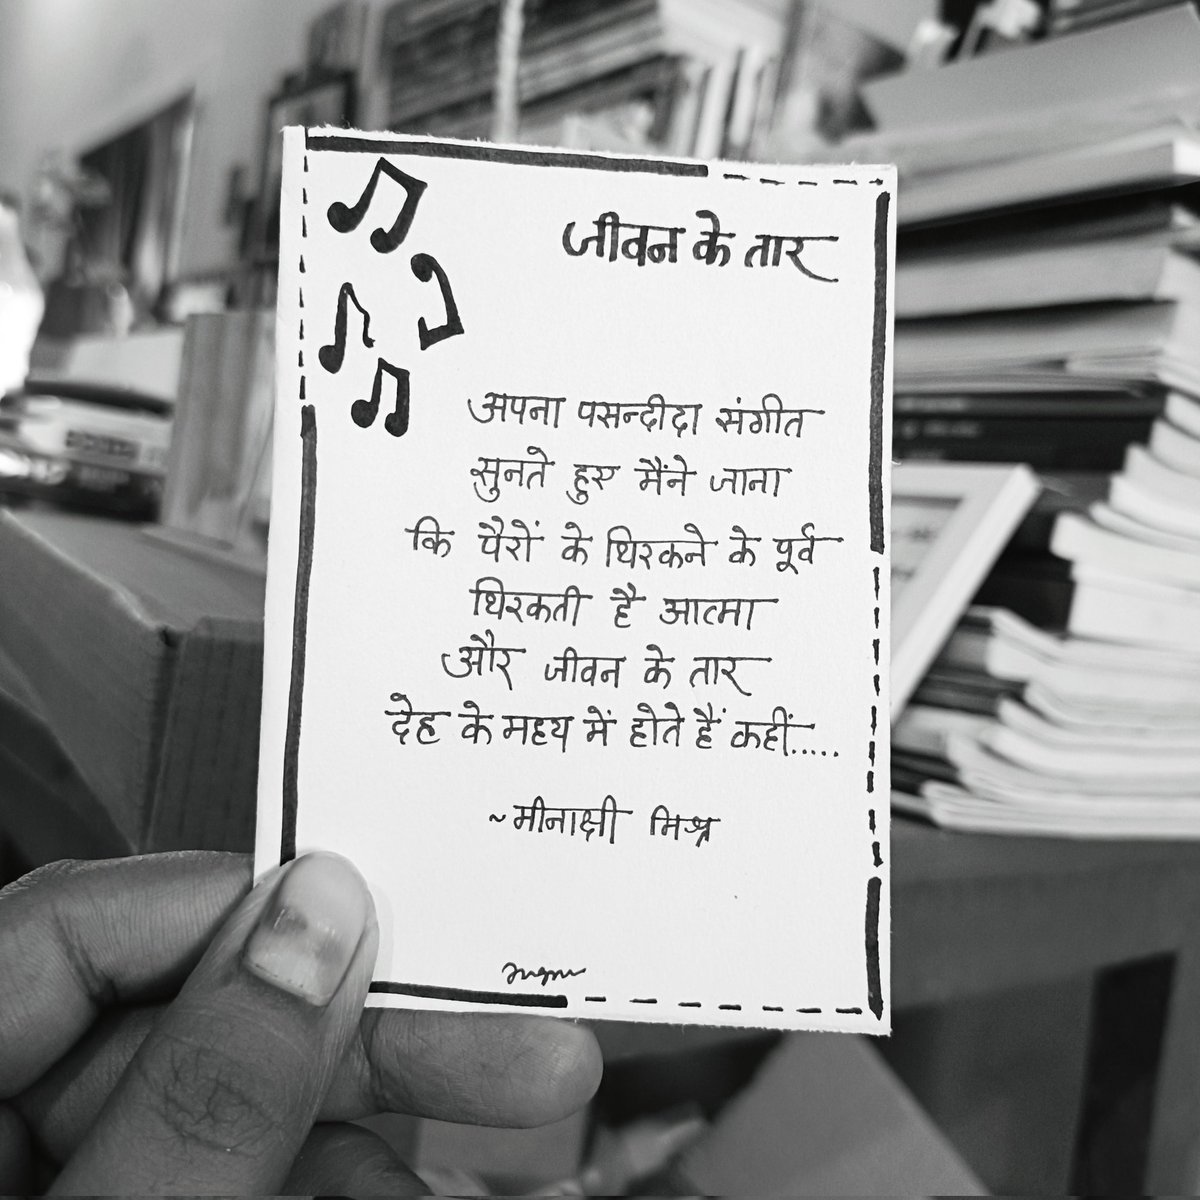 जीवन के तार
अपना पसन्दीदा संगीत
सुनते हुए मैंने जाना
कि पैरों के थिरकने के पूर्व
थिरकती है आत्मा
और जीवन के तार
देह के मध्य में होते हैं कहीं.....
~मीनाक्षी मिश्र